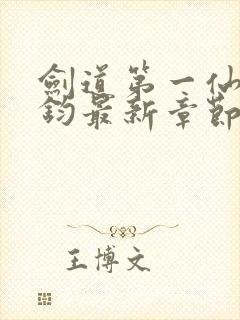 劍道第一仙
鈞最新章節
王博文